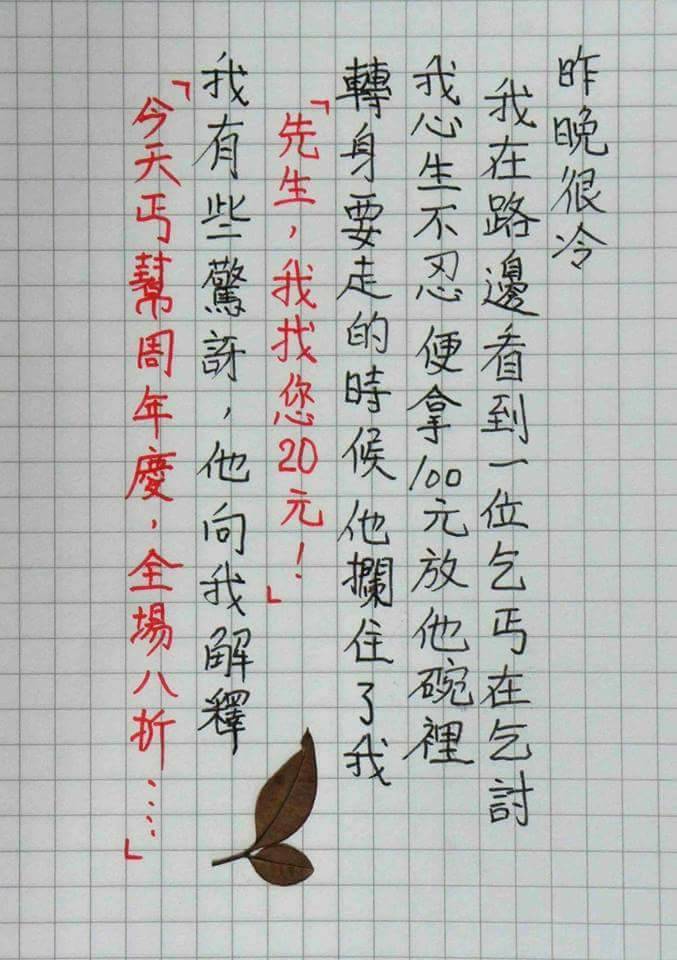 昨晚很冷
我在路邊看到一位乞丐在乞討
我心生不忍便拿100元放他碗裡
轉身要走的時候他攔住了我
「先生，我找您20元！」
我有些驚訝，他向我解釋
「今天丐幫周年慶，全場八折……」